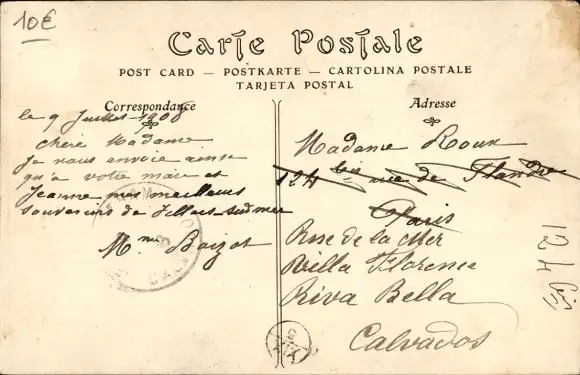 10€
Carte Postale
POST CARD — POSTKARTE — CARTOLINA POSTALE
TARJETA POSTAL
Correspondance
le 9 Juillet 1908
Chère Madame
Je vous envoie ainsi
qu'à votre mari et
Jeanne mes meilleurs
souvenirs de Villers-sur-mer
Mme Boizot
Adresse
Madame Roux
124 bis rue de Flandre
Paris
Rue de la Mer
Villa Florence
Riva Bella
Calvados